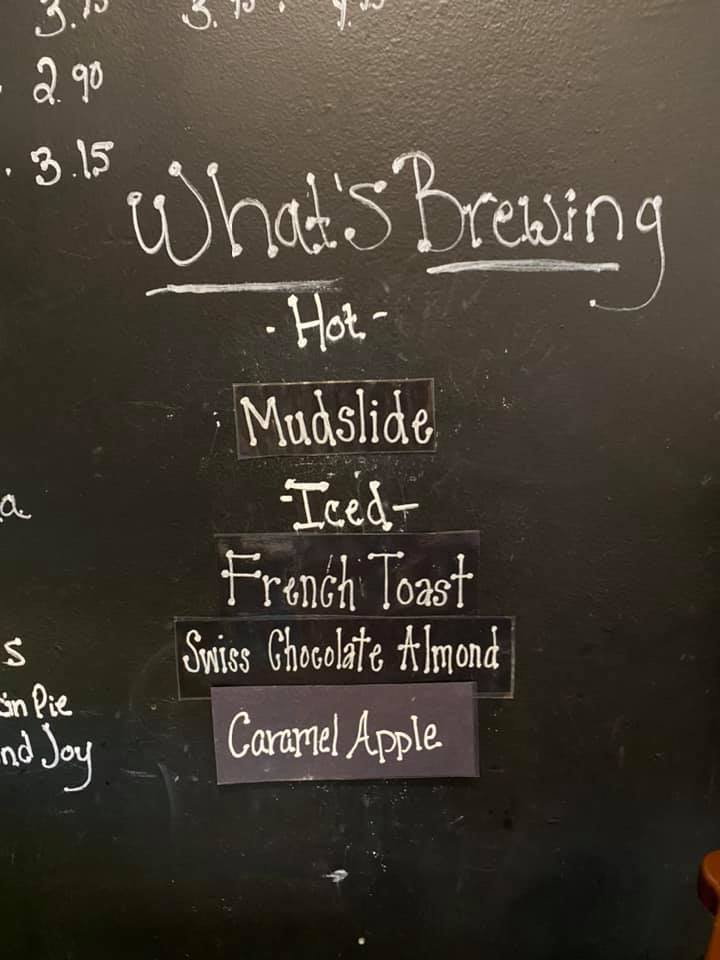 2.90
3.15
What's Brewing
- Hot -
Mudslide
- Iced -
French Toast
Swiss Chocolate Almond
Caramel Apple
a
s
Pie
nd Joy